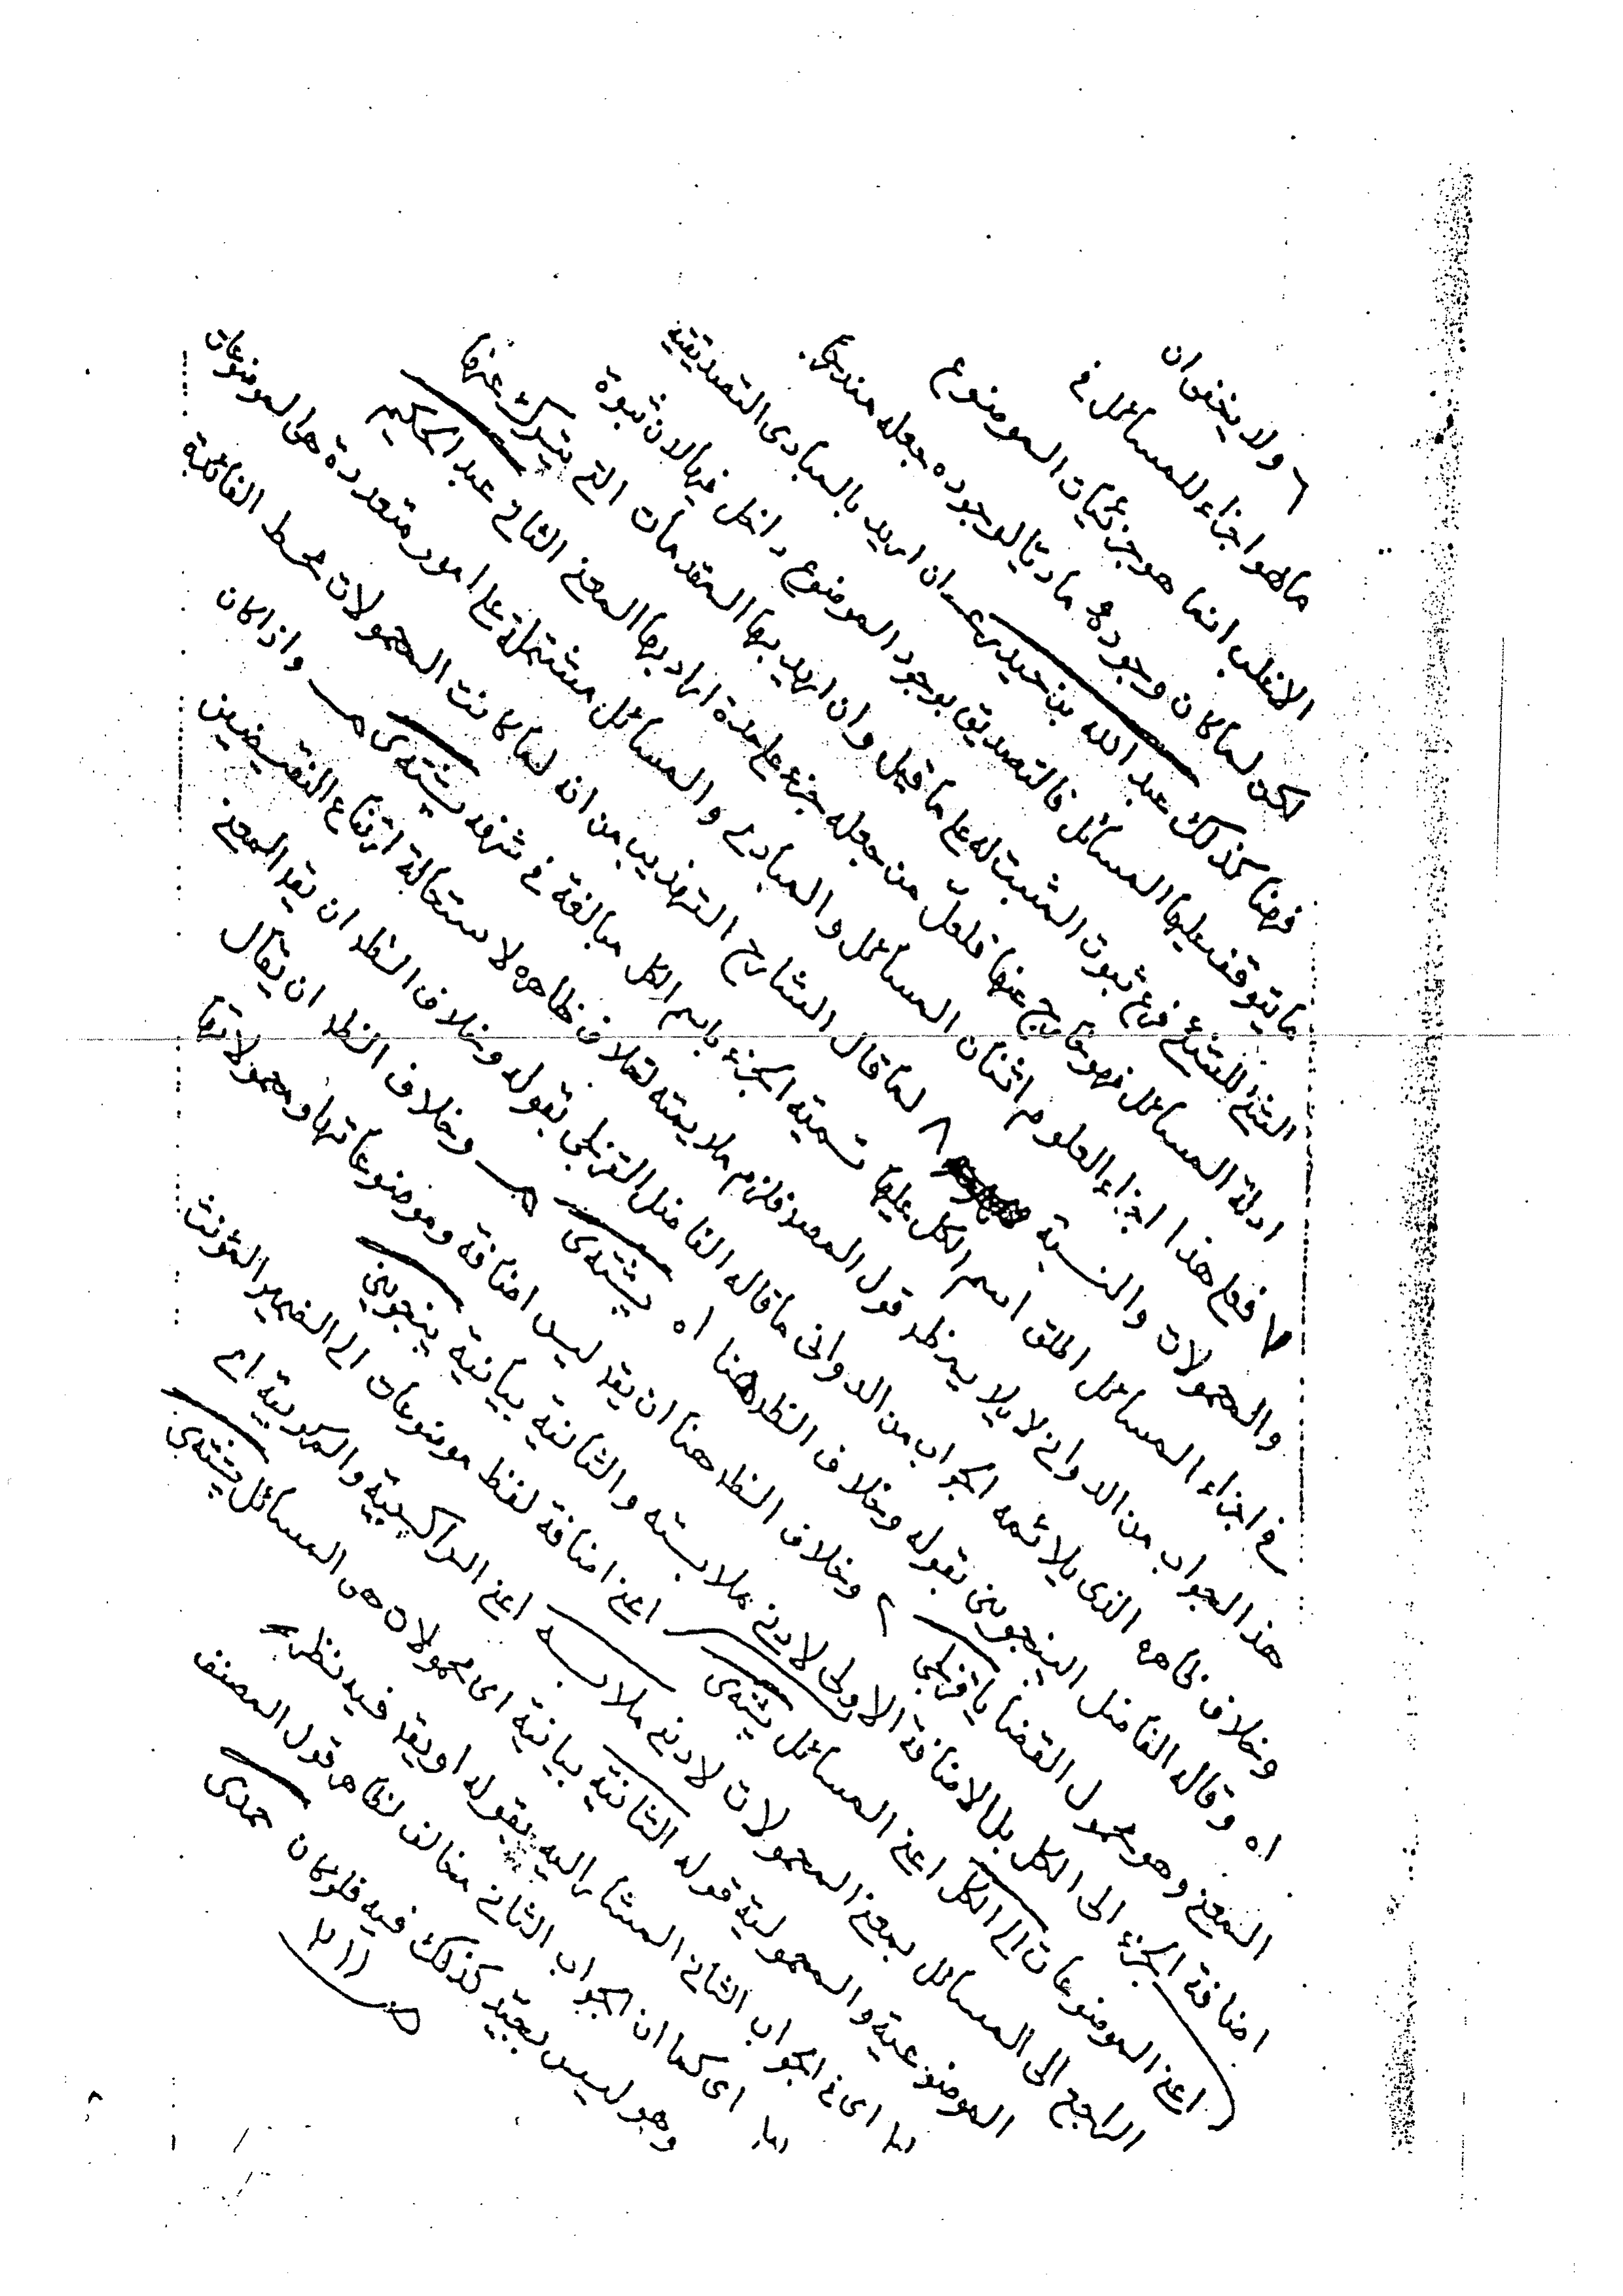 ٦ ولا يخفى ان
ما هو اجزاء للمسائل في
الاغلب انما هو جزئيات الموضوع
لكن لما كان وجوده مادتا لوجوده جعله مندرجا
فهنا كذلك عبد الله بن حيدر ان اريد بالمبادى التصديقية
ما يتوقف عليها المسائل فالتصديق بوجود الموضوع داخل فيها لان ثبوة
الشئ للشئ فرع ثبوت المثبت له على ما قيل وان اريد بها المقدمات التى يتركب عنها
ادلة المسائل فهو خارج عنها فلعل من جعله جزء على حدة اراد بها المعنى الثانى عبد الحكيم
٧ فعلى هذا اجزاء العلوم اثنان المسائل والمبادى والمسائل مشتملة على امور متعددة هى الموضوعات
والمحمولات والنسبة ٨ لما قال الشارح التهذيب من انه لما كانت المحمولات محط الفائدة
في اجزاء المسائل اطلق اسم الكل عليها تسمية الجزء باسم الكل مبالغة في شرفه يشتهدى واذا كان
هذا الجواب من الدوانى لا يلايمه ظاهر قول المصنف فلزم ملايمته لخلاف ظاهره لاستحالة ارتفاع النقيضين
وخلاف ظاهره الذى يلائمه الجواب من الدوانى ما قاله الفاضل القزلجى بقوله وخلاف الظاهر ان يقدر المعنى
اه وقال الفاضل البنجوينى بقوله وخلاف الظاهر هنا اه يشتهدى وخلاف الظاهر ان يقال
المعنى وهو محمول القضايا قزلجى ٢ وخلاف الظاهر هنا ان يقدر ليس اضافة وموضوعاتها ومحمولاتها
اضافة الجزء الى الكل بل الاضافة الاولى لادنى ملابسته والثانية بيانية بنجوينى
اعنى الموضوعات الى الكل اعنى المسائل يشتهدى اعنى اضافة لفظ موضوعات الى الضمير المؤنث
الراجع الى المسائل بمعنى المحمولات لادنى ملابسه اعنى الراكبية والمركوبية اى
الموضوعية والمحمولية قوله الثانية بيانية اى محمولات هى المسائل يشتهدى
اى في الجواب الثانى المشار اليه بقوله او يقدر فيه نظر
اى كما ان الجواب الثانى مخالف لظاهر قول المصنف
وهو ليس بجيد كذلك فيه فلو كان حمدى